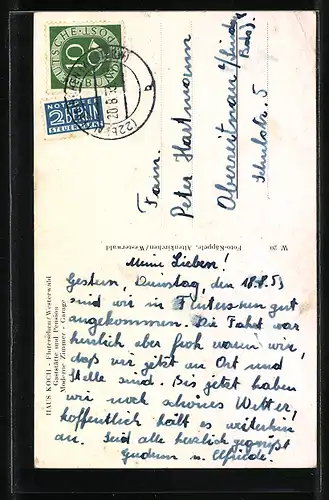 DEUTSCHE POST
10
NOTOPFER
2 BERLIN
STEUERMARKE
20.8.53
(22b)
a
Fam.
Peter Hartmann
Oberreitnau/Lindau
Bods.
Schulstr. 5
W 20 Foto-Käppele, Altenkirchen/Westerwald
HAUS KOCH - Flutersen/Westerwald
Gaststätte und Pension
Moderne Zimmer - Garage
Meine Lieben!
Gestern, Dienstag, den 18.8.53
sind wir in Flutersen gut
angekommen. Die Fahrt war
herrlich aber froh waren wir,
daß wir jetzt an Ort und
Stelle sind. Bis jetzt haben
wir noch schönes Wetter,
hoffentlich hält es weiterhin
an. Seid alle herzlich gegrüßt
Gudrun u. Elfriede.